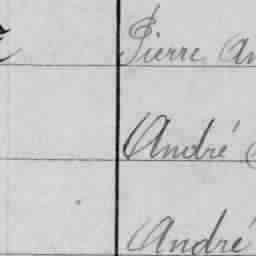 Pierre An
André
André